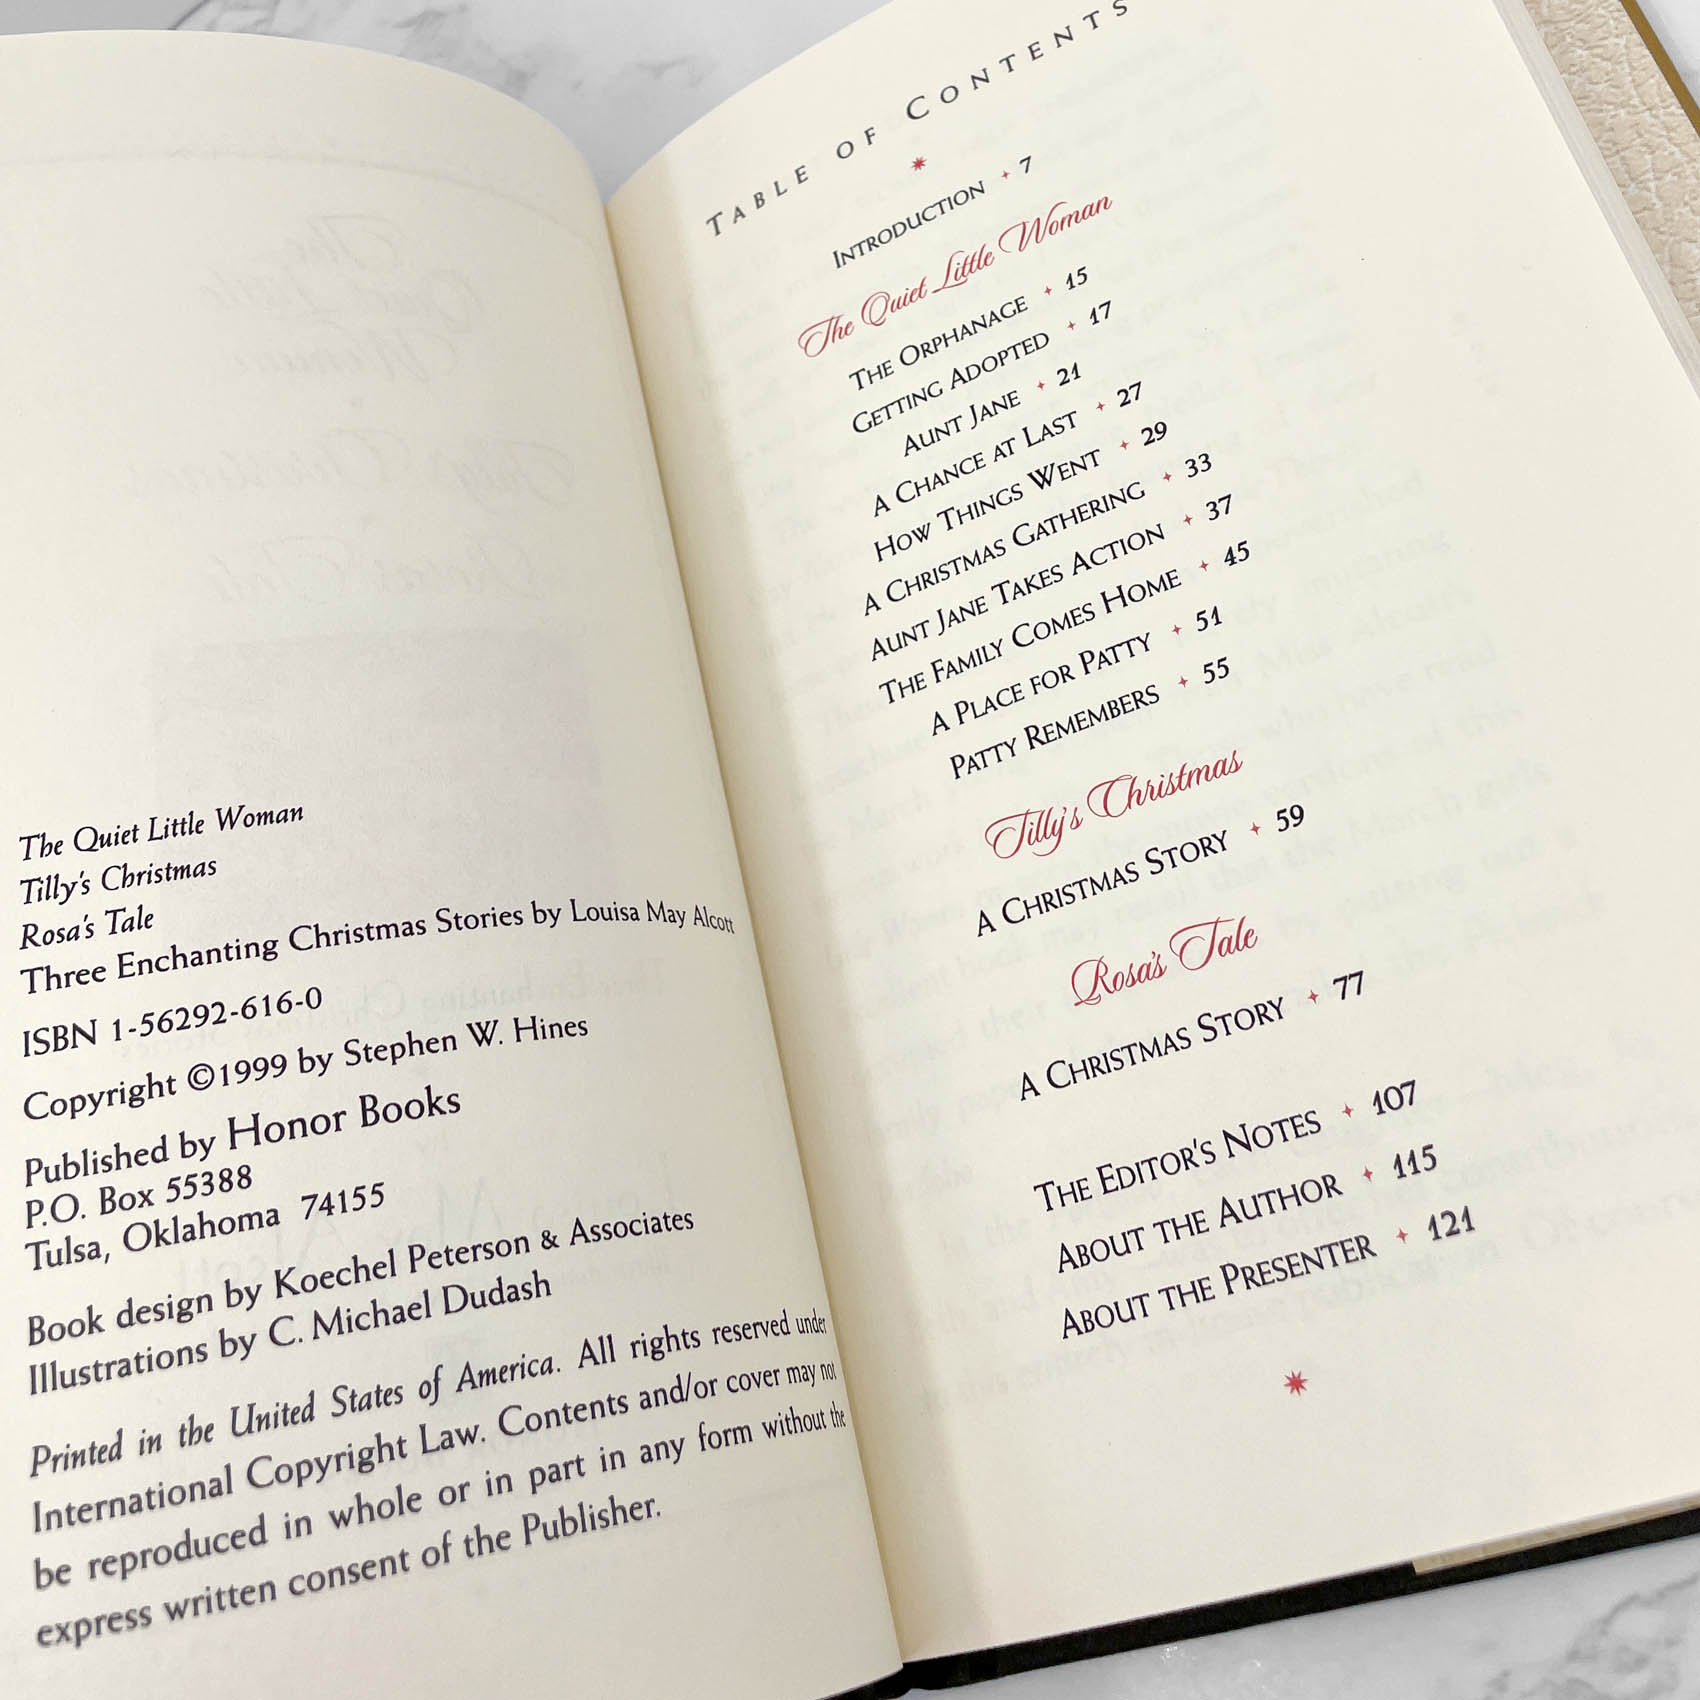 The Quiet Little Woman
Tilly's Christmas
Rosa's Tale
Three Enchanting Christmas Stories by Louisa May Alcott
ISBN 1-56292-616-0
Copyright ©1999 by Stephen W. Hines
Published by Honor Books
P.O. Box 55388
Tulsa, Oklahoma 74155
Book design by Koechel Peterson & Associates
Illustrations by C. Michael Dudash
Printed in the United States of America. All rights reserved under
International Copyright Law. Contents and/or cover may not
be reproduced in whole or in part in any form without the
express written consent of the Publisher.
TABLE OF CONTENTS
INTRODUCTION 7
The Quiet Little Woman
THE ORPHANAGE 15
GETTING ADOPTED 17
AUNT JANE 21
A CHANCE AT LAST 27
HOW THINGS WENT 29
A CHRISTMAS GATHERING 33
AUNT JANE TAKES ACTION 37
THE FAMILY COMES HOME 45
A PLACE FOR PATTY 51
PATTY REMEMBERS 55
Tilly's Christmas
A CHRISTMAS STORY 59
Rosa's Tale
A CHRISTMAS STORY 77
THE EDITOR'S NOTES 107
ABOUT THE AUTHOR 115
ABOUT THE PRESENTER 121